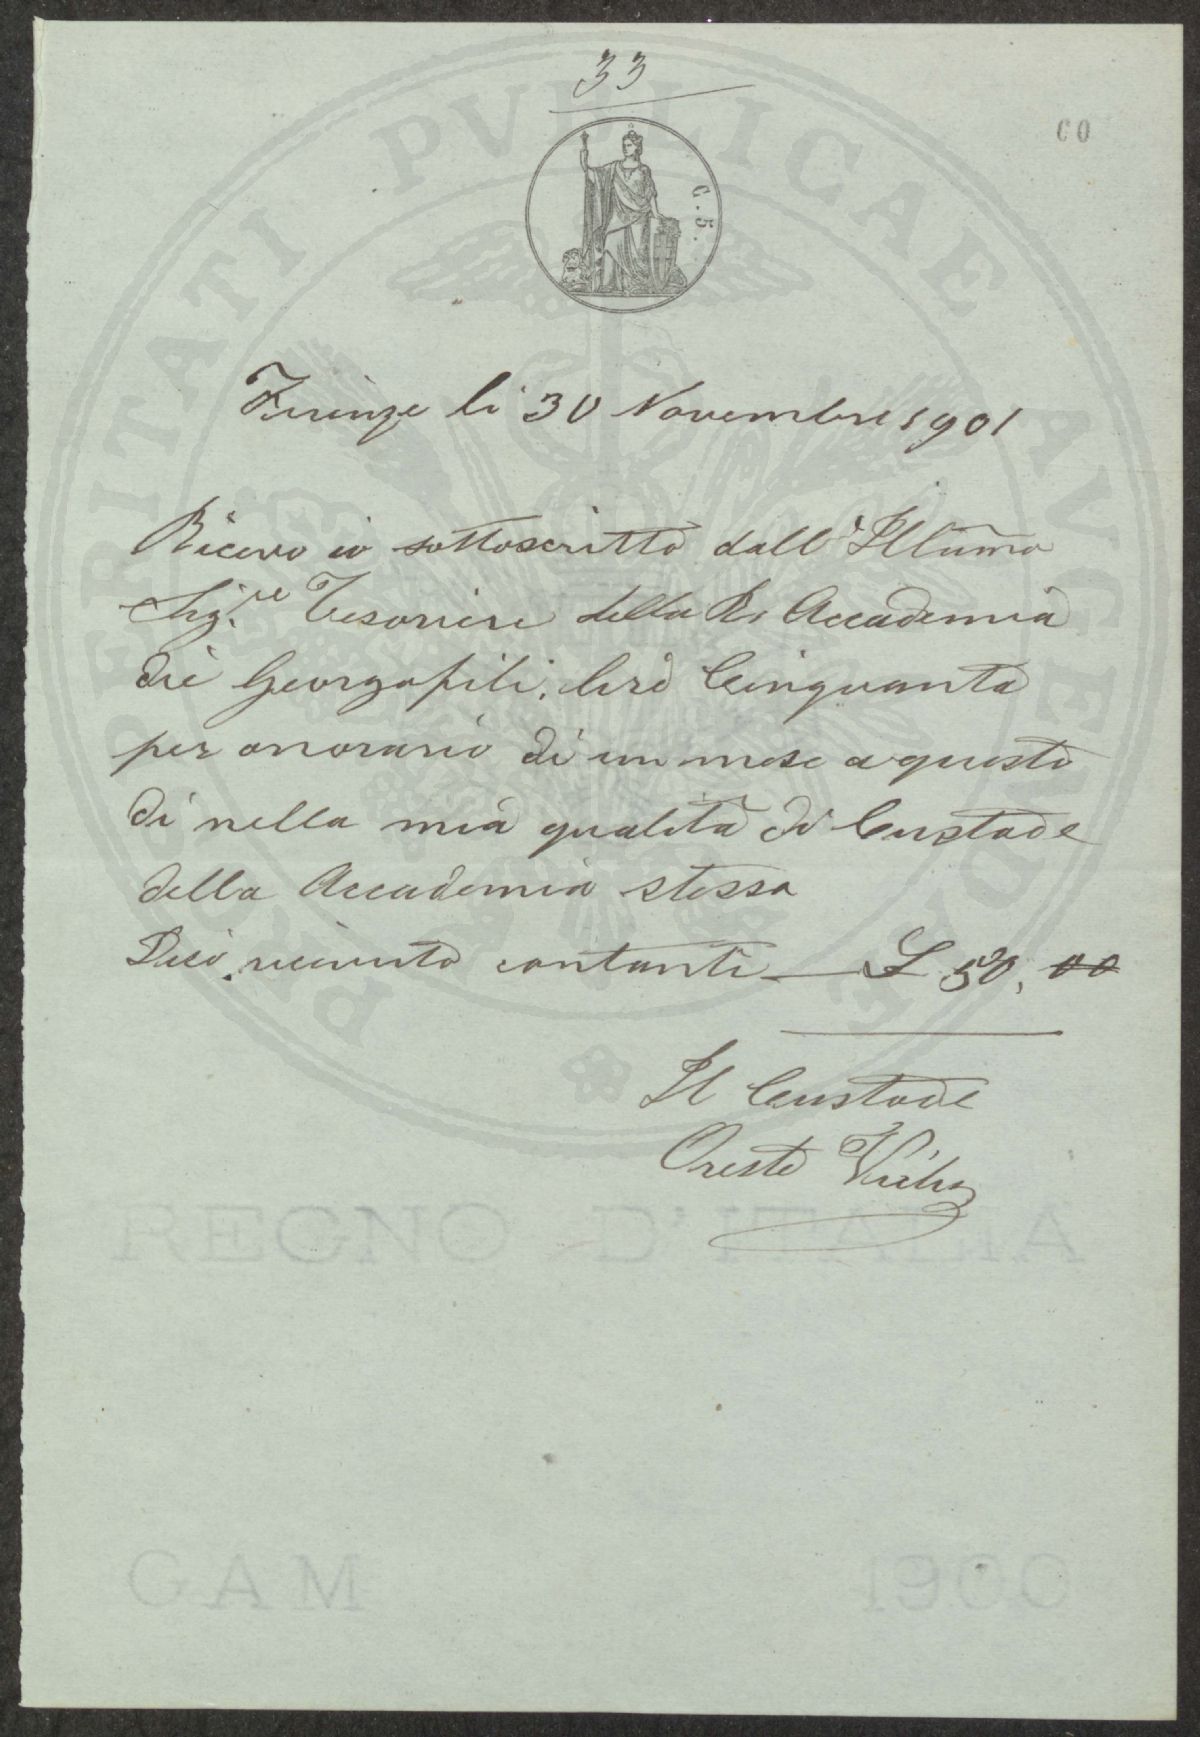 33
CO
C. 5.
PROSPERITATI PVBLICAE AVGENDAE
Firenze li 30 Novembre 1901
Ricevo io sottoscritto dall' Illũmo
Sig.re Tesoriere della R. Accademia
dei Georgofili, lire Cinquanta
per onorario di un mese a questo
dì nella mia qualità di Custode
della Accademia stessa
Dico ricevuto contanti — £ 50,00
Il Custode
Oreste
REGNO D'ITALIA
GAM 1900